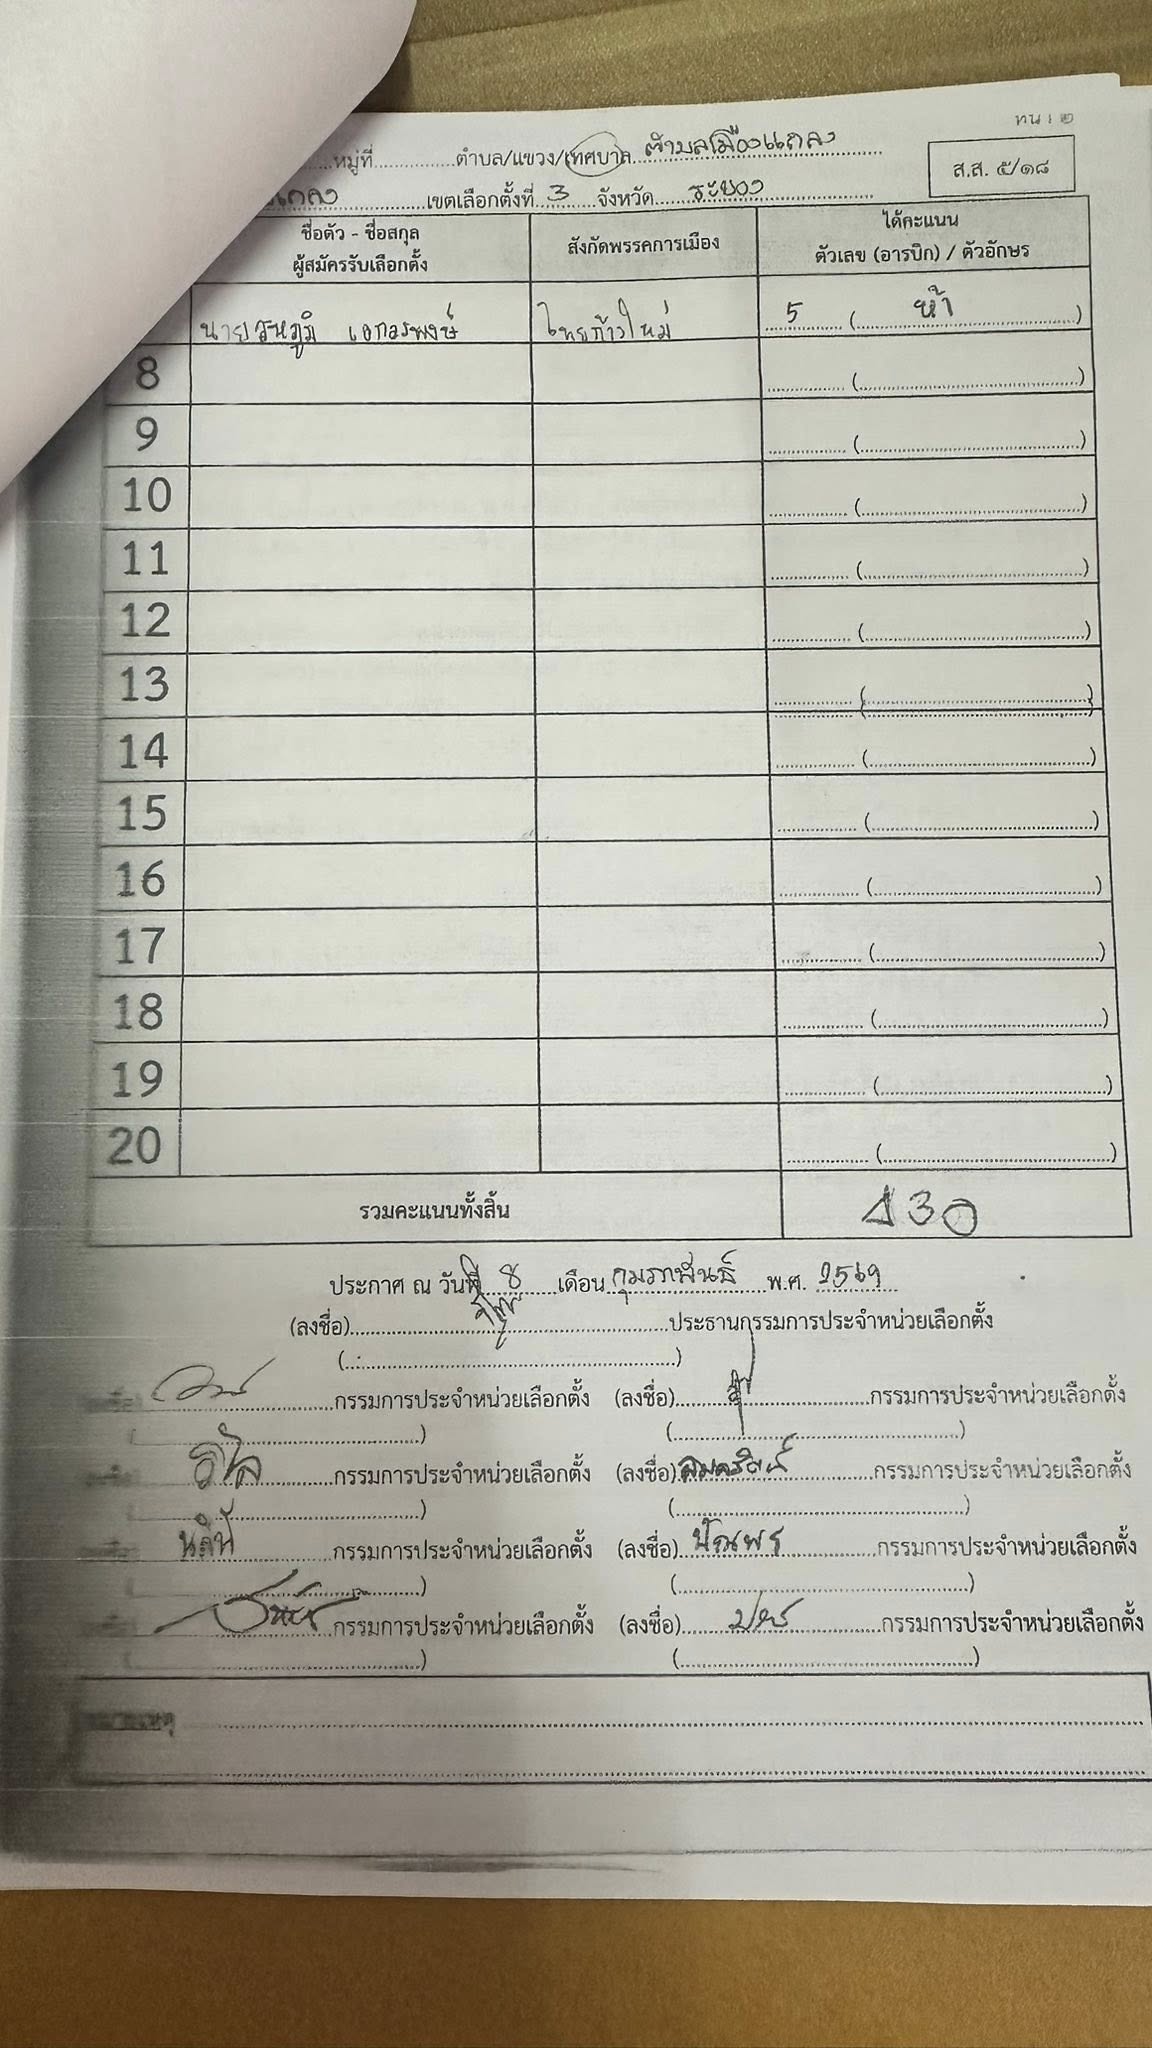 หน้า ๒
หมู่ที่ ตำบล/แขวง/เทศบาล ตำบลเมืองแกลง
ส.ส. ๕/๑๘
แกลง เขตเลือกตั้งที่ 3 จังหวัด ระยอง
ชื่อตัว - ชื่อสกุล ผู้สมัครรับเลือกตั้ง สังกัดพรรคการเมือง ได้คะแนน ตัวเลข (อารบิก) / ตัวอักษร
นาย ไทยก้าวใหม่ 5 (ห้า)
8 ( )
9 ( )
10 ( )
11 ( )
12 ( )
13 ( )
14 ( )
15 ( )
16 ( )
17 ( )
18 ( )
19 ( )
20 ( )
รวมคะแนนทั้งสิ้น 430
ประกาศ ณ วันที่ 8 เดือน กุมภาพันธ์ พ.ศ. 2569
(ลงชื่อ) ประธานกรรมการประจำหน่วยเลือกตั้ง
( )
กรรมการประจำหน่วยเลือกตั้ง (ลงชื่อ) กรรมการประจำหน่วยเลือกตั้ง
( ) ( )
กรรมการประจำหน่วยเลือกตั้ง (ลงชื่อ) กรรมการประจำหน่วยเลือกตั้ง
( ) ( )
กรรมการประจำหน่วยเลือกตั้ง (ลงชื่อ) กรรมการประจำหน่วยเลือกตั้ง
( ) ( )
กรรมการประจำหน่วยเลือกตั้ง (ลงชื่อ) กรรมการประจำหน่วยเลือกตั้ง
( ) ( )